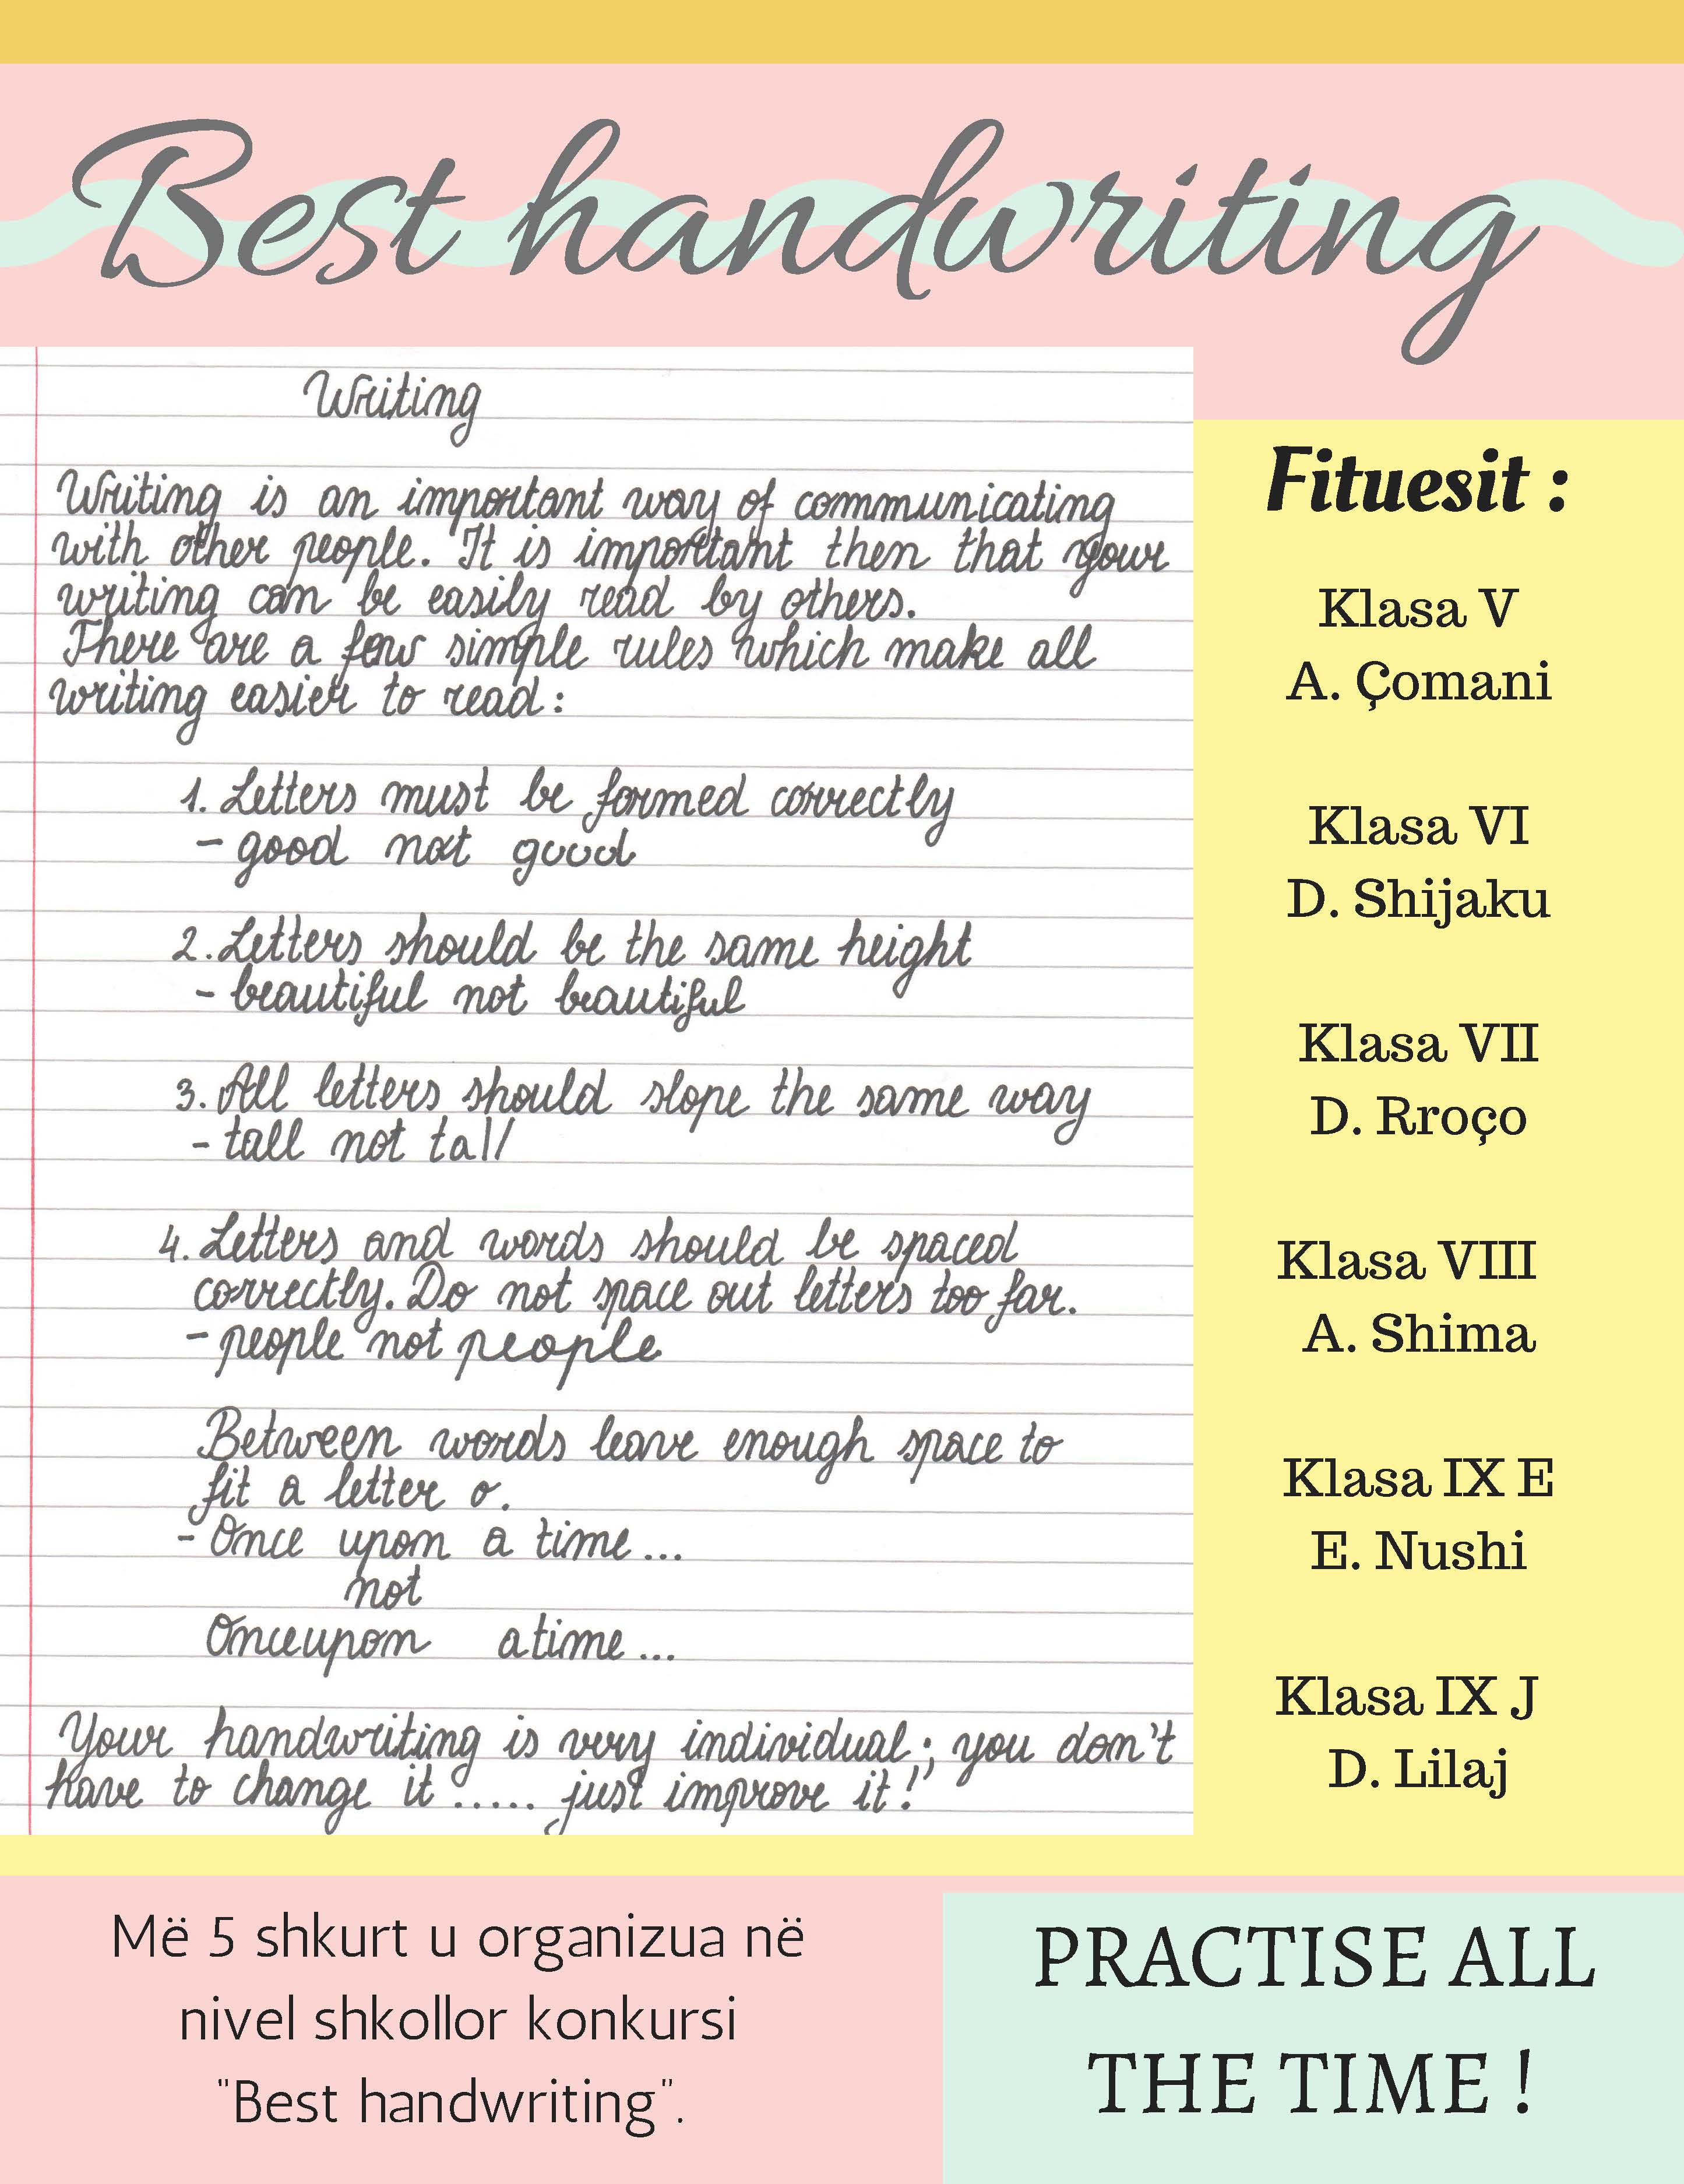 Best handwriting
Writing
Writing is an important way of communicating
with other people. It is important then that your
writing can be easily read by others.
There are a few simple rules which make all
writing easier to read:
1. Letters must be formed correctly
- good not good
2. Letters should be the same height
- beautiful not beautiful
3. All letters should slope the same way
- tall not tall
4. Letters and words should be spaced
correctly. Do not space out letters too far.
- people not people
Between words leave enough space to
fit a letter o.
- Once upon a time...
not
Onceupon atime...
Your handwriting is very individual; you don't
have to change it ..... just improve it!
Fituesit :
Klasa V
A. Çomani
Klasa VI
D. Shijaku
Klasa VII
D. Rroço
Klasa VIII
A. Shima
Klasa IX E
E. Nushi
Klasa IX J
D. Lilaj
Më 5 shkurt u organizua në
nivel shkollor konkursi
"Best handwriting".
PRACTISE ALL
THE TIME !